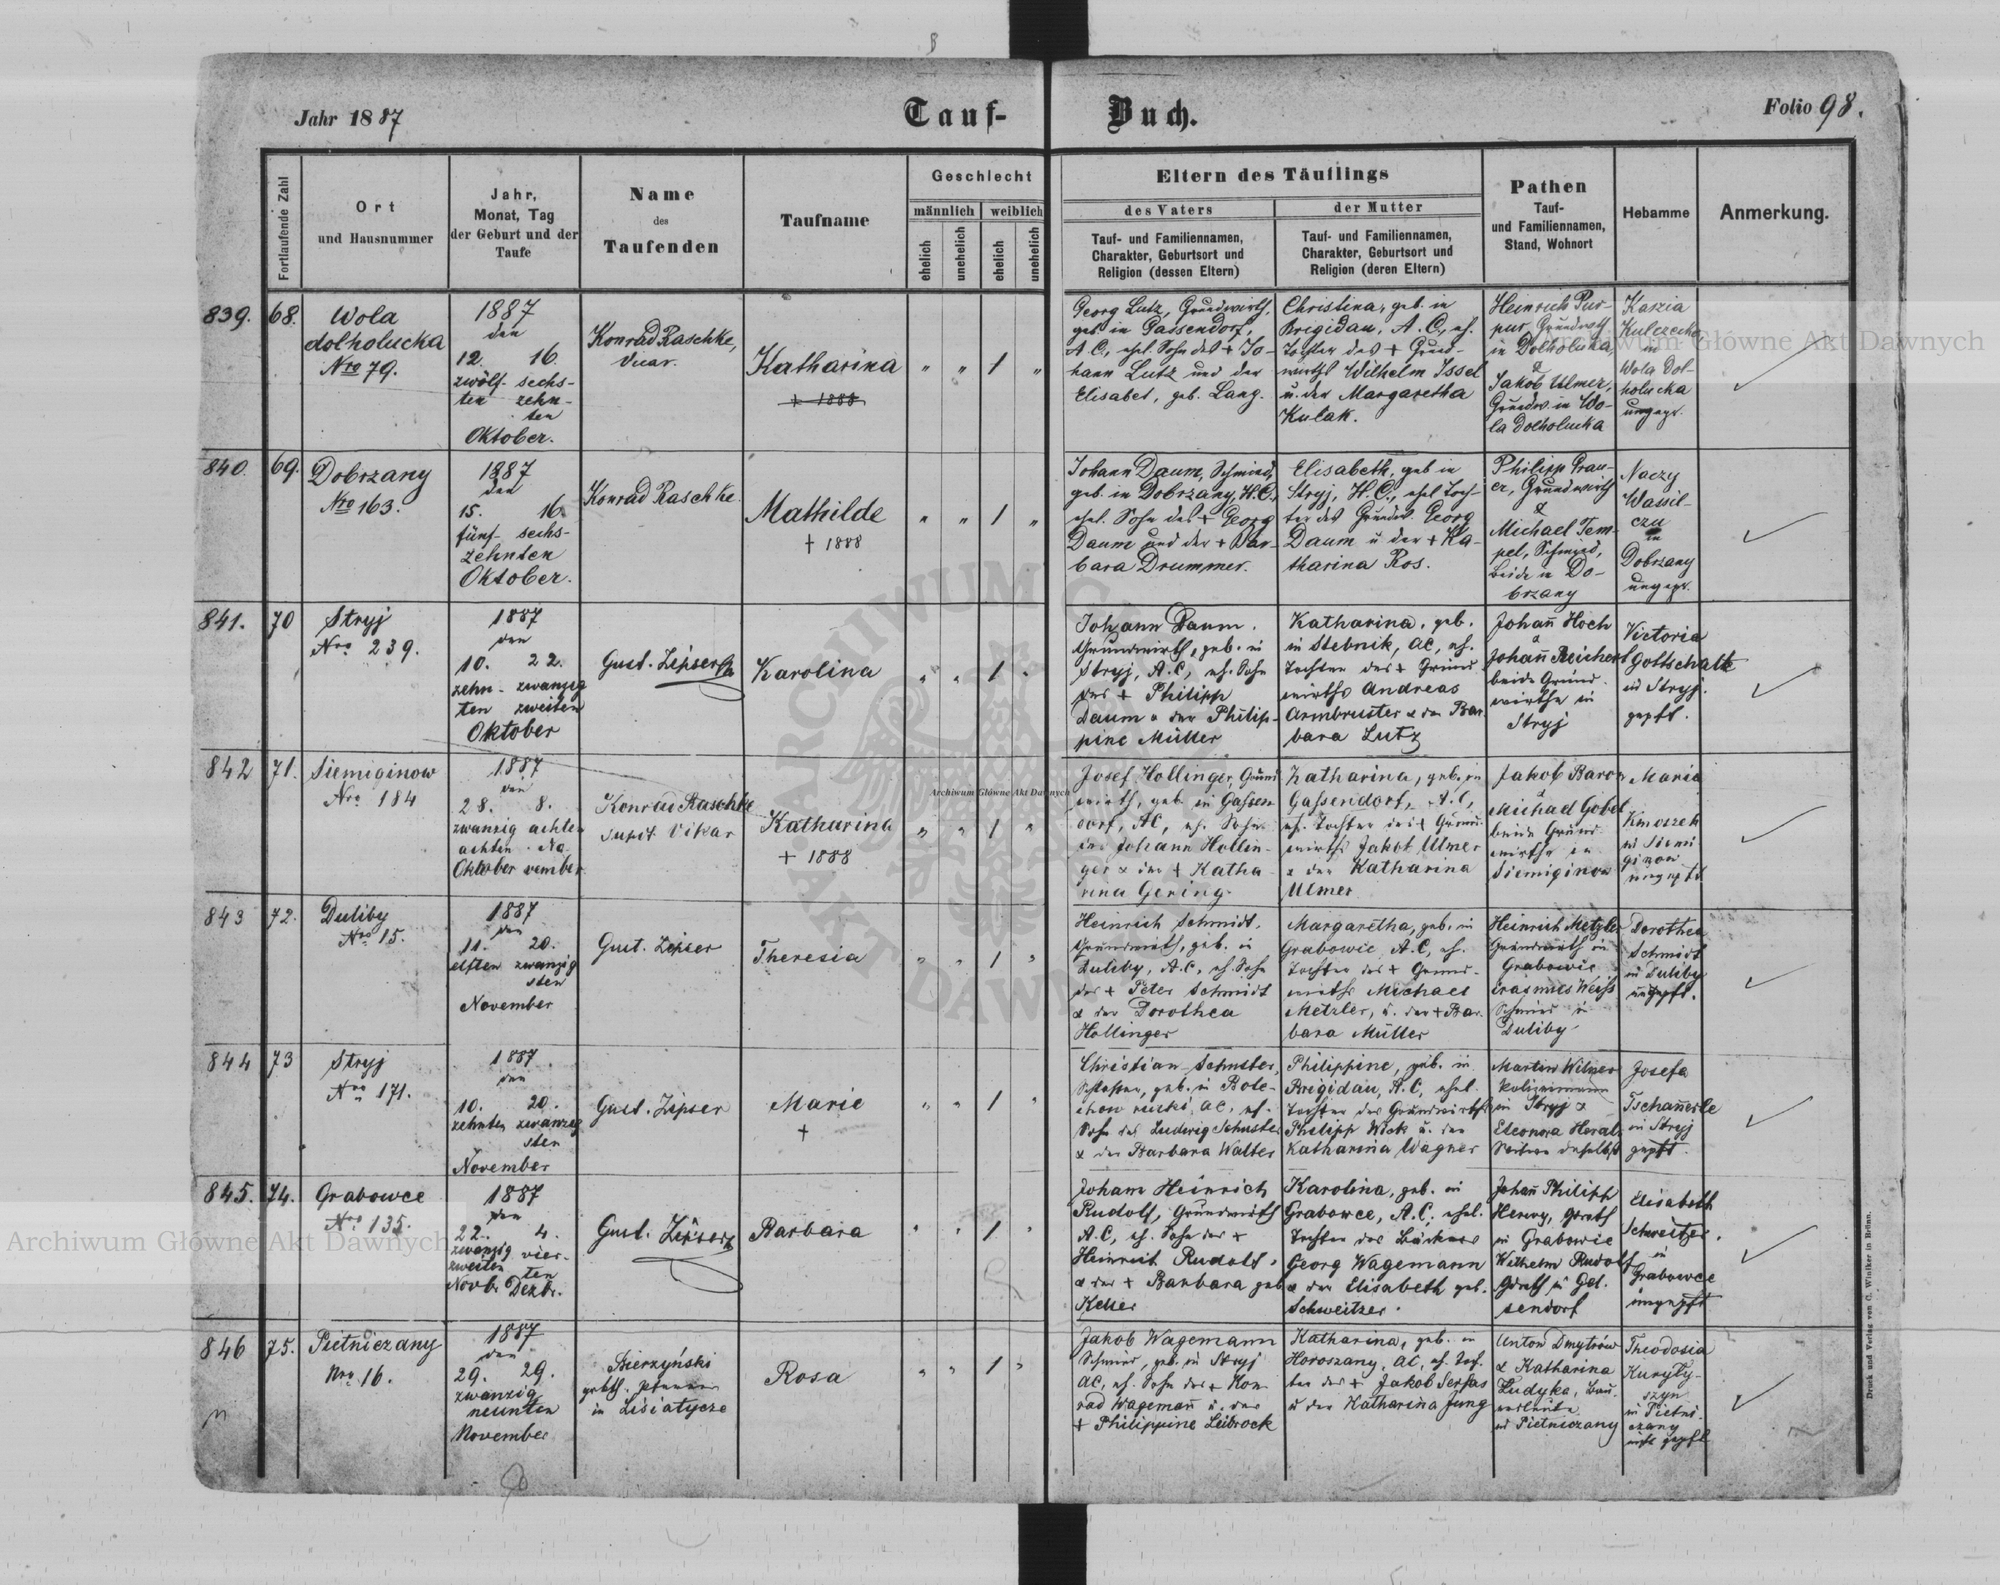 Jahr 1887
Tauf-Buch.
Folio 98.
Fortlaufende Zahl
Ort
und Hausnummer
Jahr,
Monat, Tag
der Geburt und der
Taufe
Name
des
Taufenden
Taufname
Geschlecht
männlich
weiblich
ehelich
unehelich
ehelich
unehelich
Eltern des Täuflings
des Vaters
Tauf- und Familiennamen,
Charakter, Geburtsort und
Religion (dessen Eltern)
der Mutter
Tauf- und Familiennamen,
Charakter, Geburtsort und
Religion (deren Eltern)
Pathen
Tauf-
und Familiennamen,
Stand, Wohnort
Hebamme
Anmerkung.
839. 68.
Wola
dolholucka
Nro 79.
1887
den
12. 16.
zwölf- sechs-
ten zehn-
ten
Oktober.
Konrad Raschke,
Vicar.
Katharina
+ 1888
" " 1 "
Georg Lutz, Grundwirth,
geb. in Gassendorf,
A.C., ehel. Sohn des + Jo-
hann Lutz und der
Elisabet, geb. Lang.
Christina, geb. in
Brigidau, A.C., eh.
Tochter des + Grund-
wirths Wilhelm Issel
u. der Margaretha
Kulak.
Heinrich Pur-
pur, Grundwirth
in Dolholuka,
&
Jakob Ulmer,
Grundw. in Wo-
la Dolholucka
Kaszia
Kulczecka
in
Wola Dol-
holucka
ungepr.
840. 69.
Dobrzany
Nro 163.
1887
den
15. 16.
fünf- sechs-
zehnten
Oktober.
Konrad Raschke.
Mathilde
+ 1888
" " 1 "
Johann Daum, Schmied,
geb. in Dobrzany, H.C.,
ehel. Sohn des + Georg
Daum und der + Bar-
bara Drummer.
Elisabeth, geb in
Stryj, H.C., ehel Toch-
ter des Grundw. Georg
Daum u der + Ka-
tharina Ros.
Philipp Brau-
er, Grundwirth
&
Michael Tem-
pel, Schmied,
beide in Do-
brzany
Naczy
Wassil-
czu
in
Dobrzany
ungepr.
841. 70
Stryj
Nro 239.
1887
den
10. 22.
zehn- zwanzig
ten zweiten
Oktober
Gust. Zipser
Karolina
" " 1 "
Johann Daum.
Grundwirth, geb. in
Stryj, A.C, eh. Sohn
des + Philipp
Daum u der Philip-
pine Müller
Katharina, geb.
in Stebnik, AC, eh.
Tochter des + Grund
wirths Andreas
Armbruster & der Bar
bara Lutz
Johañ Hoch
&
Johañ Reichert
beide Grund
wirthe in
Stryj
Victoria
Gottschalk
in Stryj.
gepft.
842 71.
Siemiginow
Nro 184
1887
den
28. 8.
zwanzig achten
achten No
Oktober vember
Konrad Raschke
Vikar
Katharina
+ 1888
" " 1 "
Josef Hollinger, Grund
wirth, geb. in Gassen
dorf, AC, eh. Sohn
des Johann Hollin-
ger & der + Katha
rina Gering.
Katharina, geb. in
Gassendorf, A.C,
eh. Tochter des + Grund
wirths Jakob Ulmer
& der Katharina
Ulmer
Jakob Baron
&
Michael Gobel
beide Grund
wirthe in
Siemiginow
Maria
Kmoszek
in Siemi
ginow
ungepft
843 72.
Duliby
Nro 15.
1887
den
11. 20.
elften zwanzig
sten
November
Gust. Zipser
Theresia
" " 1 "
Heinrich Schmidt,
Grundwirth, geb. in
Duliby, A.C, eh. Sohn
des + Peter Schmidt
& der Dorothea
Hollinger
Margaretha, geb. in
Grabowie A.C, eh.
Tochter des + Grund-
wirths Michael
Metzler, u. der + Bar
bara Müller
Heinrich Metzler
Grundwirth in
Grabowie
Erasmus Weiss
Schmied in
Duliby
Dorothea
Schmidt
in Duliby
ungepft.
844 73
Stryj
Nro 171.
1887.
den
10. 20.
zehnten zwanzig
sten
November
Gust. Zipser
Marie
+
" " 1 "
Christian Schuster,
Schlosser, geb. in Bole-
chow ruski, AC, eh.
Sohn des Ludwig Schuster
& der Barbara Walter
Philippine, geb. in
Brigidau, A.C, ehel.
Tochter des Grundwirths
Philipp Wick u. der
Katharina Wagner
Martin Wilmer
in Stryj &
Eleonora Herals
daselbst
Josefa
Tschañerle
in Stryj
gepft.
845. 74.
Grabowce
Nro 135.
1887
den
22. 4.
zwanzig vier-
zweiten ten
Novb. Dezbr.
Gust. Zipser
Barbara
" " 1 "
Johann Heinrich
Rudolf, Grundwirth
A.C, eh. Sohn des +
Heinrich Rudolf,
& der + Barbara geb
Keller
Karolina, geb. in
Grabowce, A.C, ehel.
Tochter des Bäckers
Georg Wagemann
& der Elisabeth geb.
Schweitzer.
Johañ Philipp
Herwy, Grdwth
in Grabowie
Wilhelm Rudolf
Grdwth in Gas-
sendorf
Elisabeth
Schweitzer,
in
Grabowce
ungepft
846 75.
Pietniczany
Nro 16.
1887
den
29. 29.
zwanzig
neunten
November
Bierzyński
in Lisiatycze
Rosa
" " 1 "
Jakob Wagemann
Schmied, geb. in Stryj
AC, eh. Sohn des + Kon
rad Wagemañ u. der
+ Philippine Leibrock
Katharina, geb. in
Horoszany, AC, eh. Toch-
ter des + Jakob Serfas
u der Katharina Jung
Anton Dmytrów
& Katharina
Ludyka, Bau-
in Pietniczany
Theodosia
Kuryly-
szyn
in Pietni-
czany
nicht gepft
Druck und Verlag von C. Winiker in Brünn.
Archiwum Główne Akt Dawnych
Archiwum Główne Akt Dawnych
Archiwum Główne Akt Dawnych